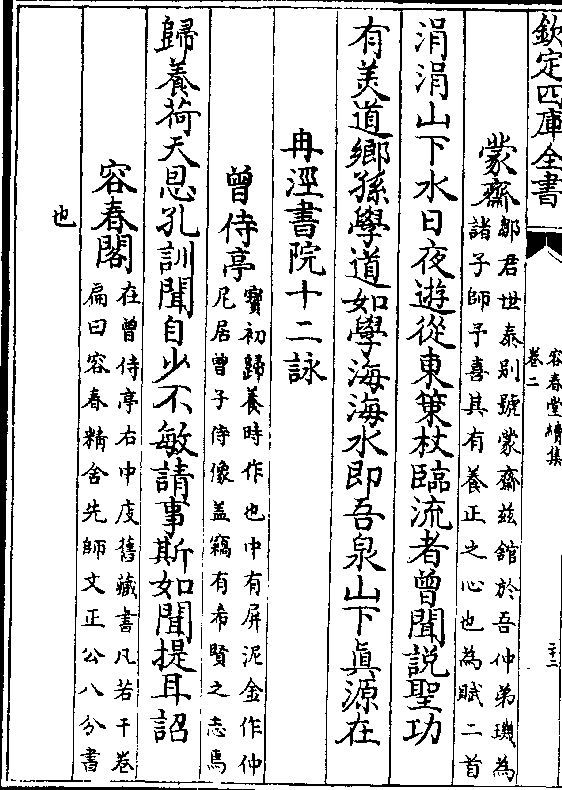 欽定四庫全書
容春堂續集
卷二
二十二
蒙齋
鄒君世泰别號蒙齋兹舘於吾仲弟璣為
諸子師予喜其有養正之心也為賦二首
涓涓山下水日夜遊從東䇿杖臨流者曾聞説聖功
有美道鄉孫學道如學海海水即吾泉山下眞源在
冉涇書院十二詠
曾侍亭
寳初歸養時作也中有屏泥金作仲
尼居曾子侍像盖竊有希賢之志焉
歸養荷天恩孔訓聞自少不敏請事斯如聞提耳詔
容春閣
在曾侍亭右中庋舊藏書凡若干卷
扁曰容春精舍先師文正公八分書
也